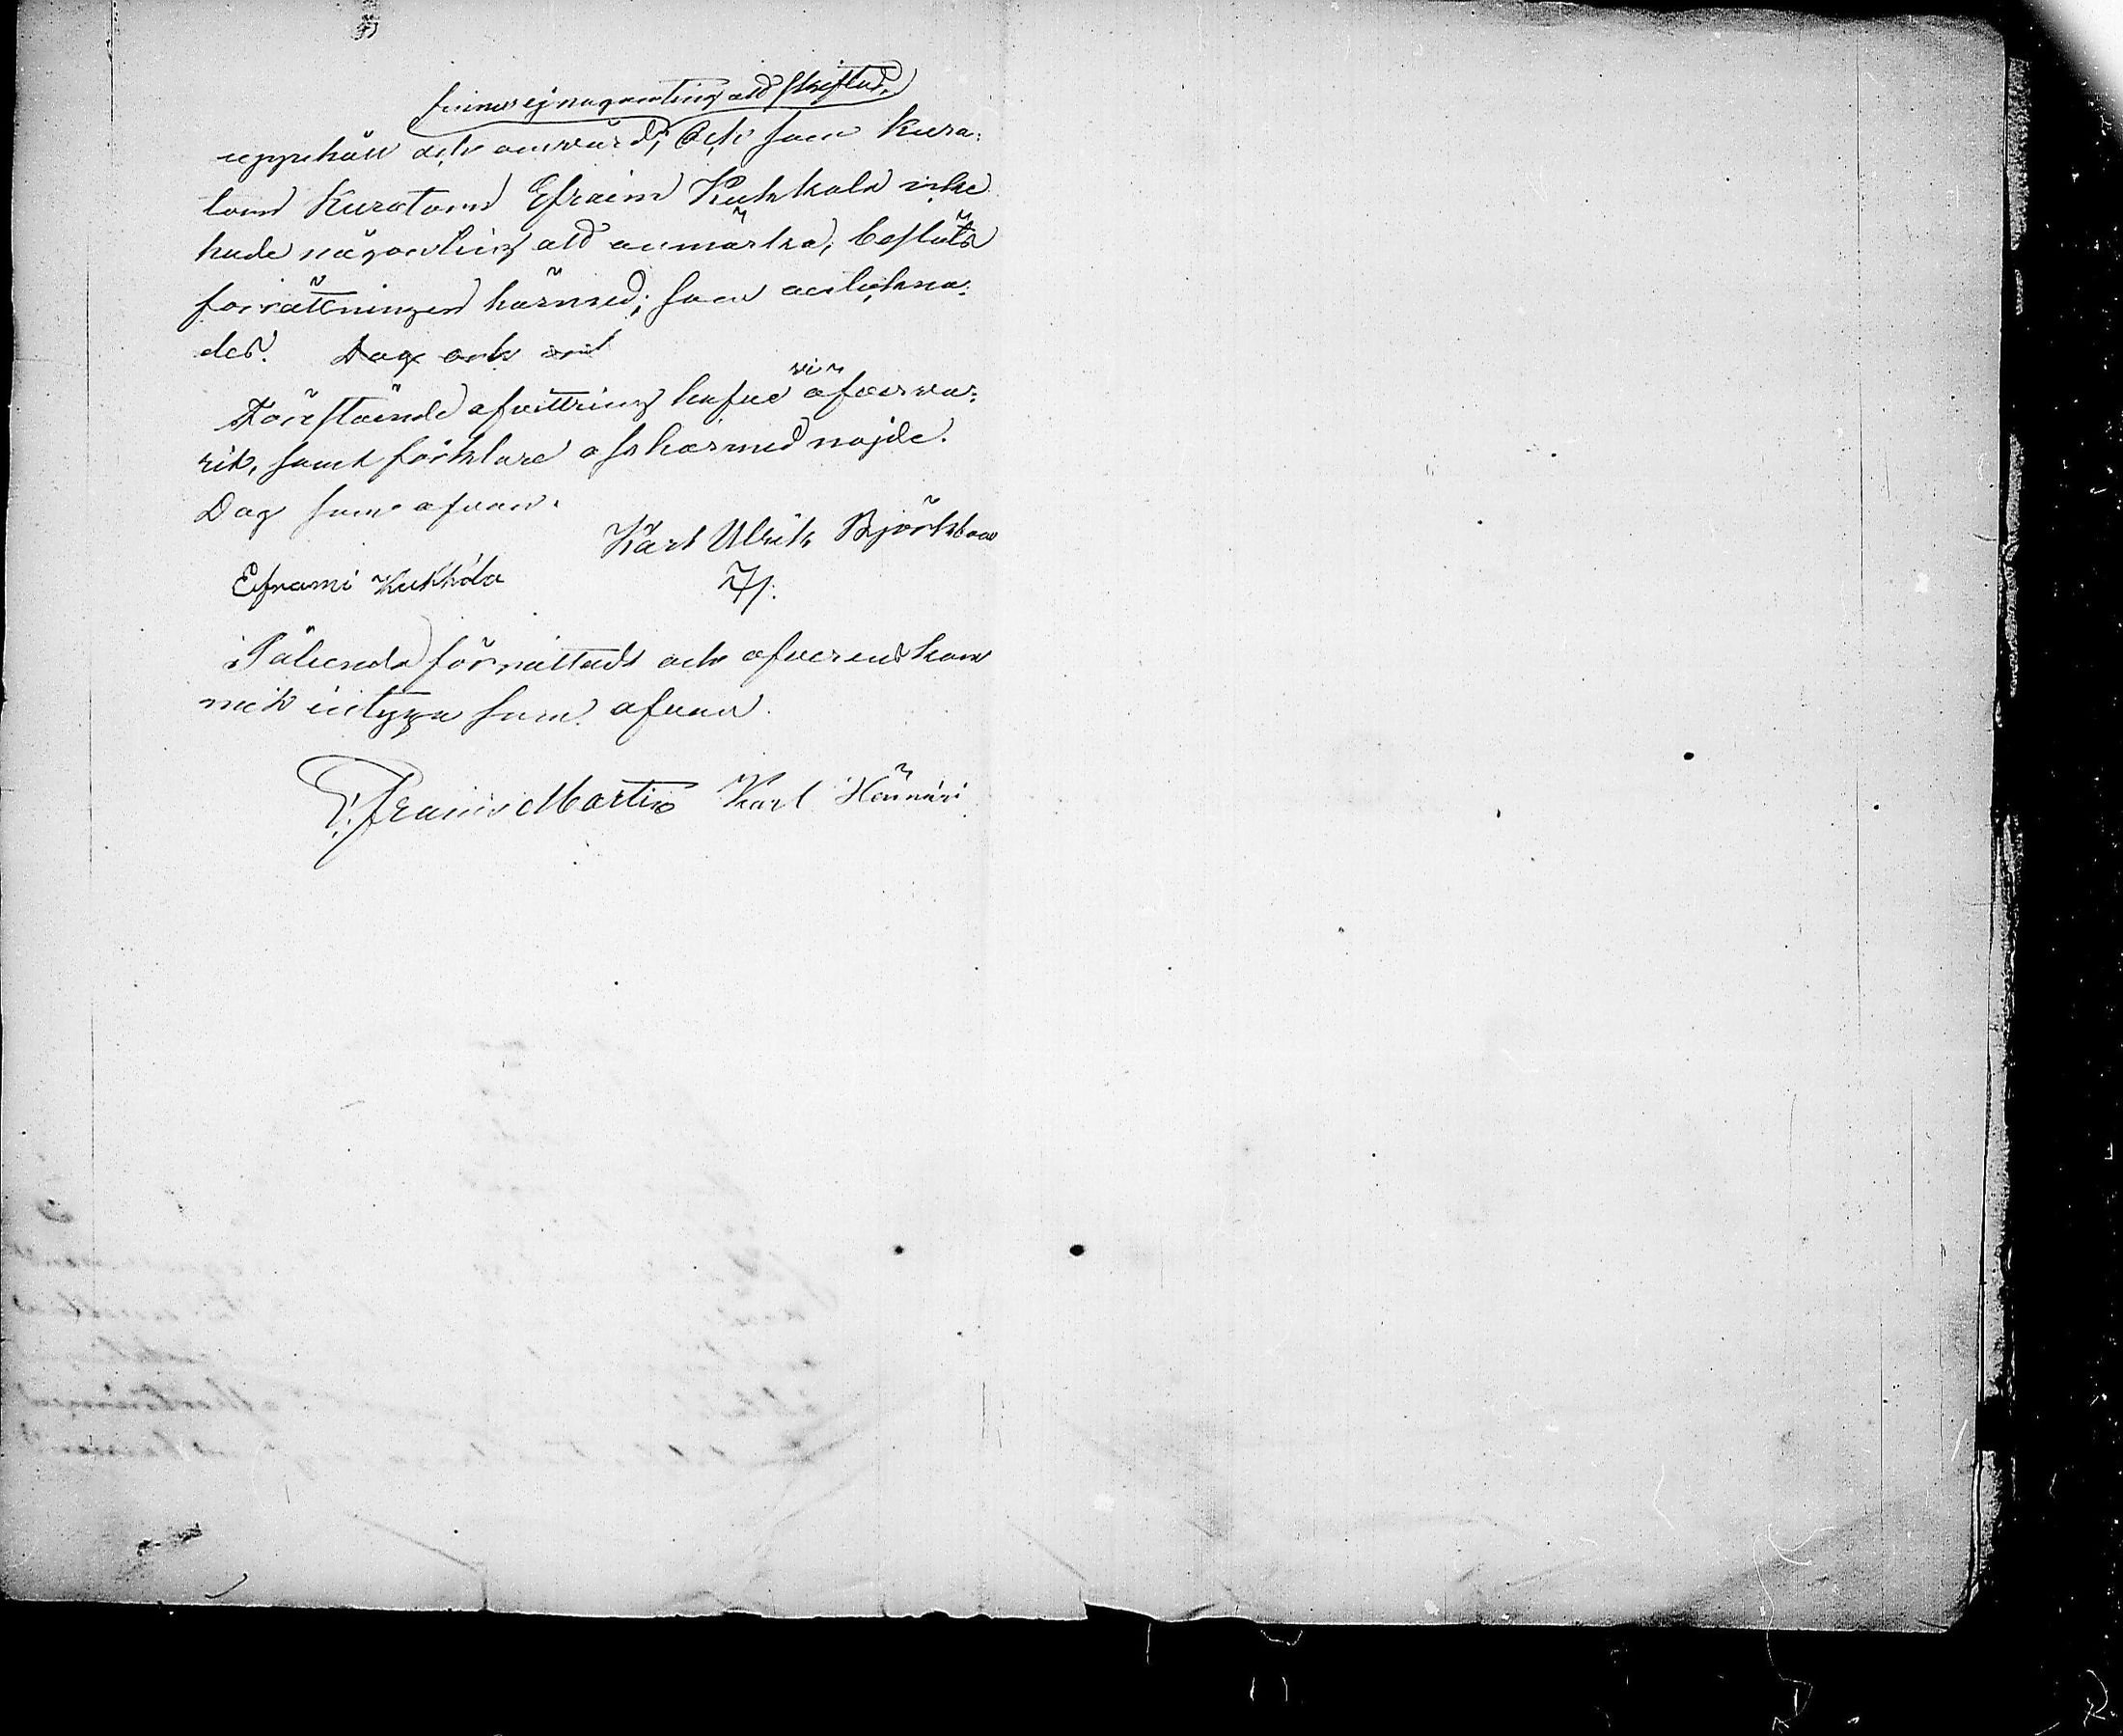 finnes ej någonting att skiftad,
uppehåll och anvård; Och som kura-
torns Kuratorn Efraim Kukkola icke
hade någonting att anmärka, beslöts
förrättningen härmed; som antekna-
des. Dag och
Förestående afvittring hafve vi öfvervar-
rit, samt förklare oss härmed nöjde.
Dag som ofvan.
Karl Ulrik Björkbom
Eframi Kukkola
Sålunda förrättadt och öfverenskom
mit intyga som ofvan.
Efraim Martin Karl Hännäri